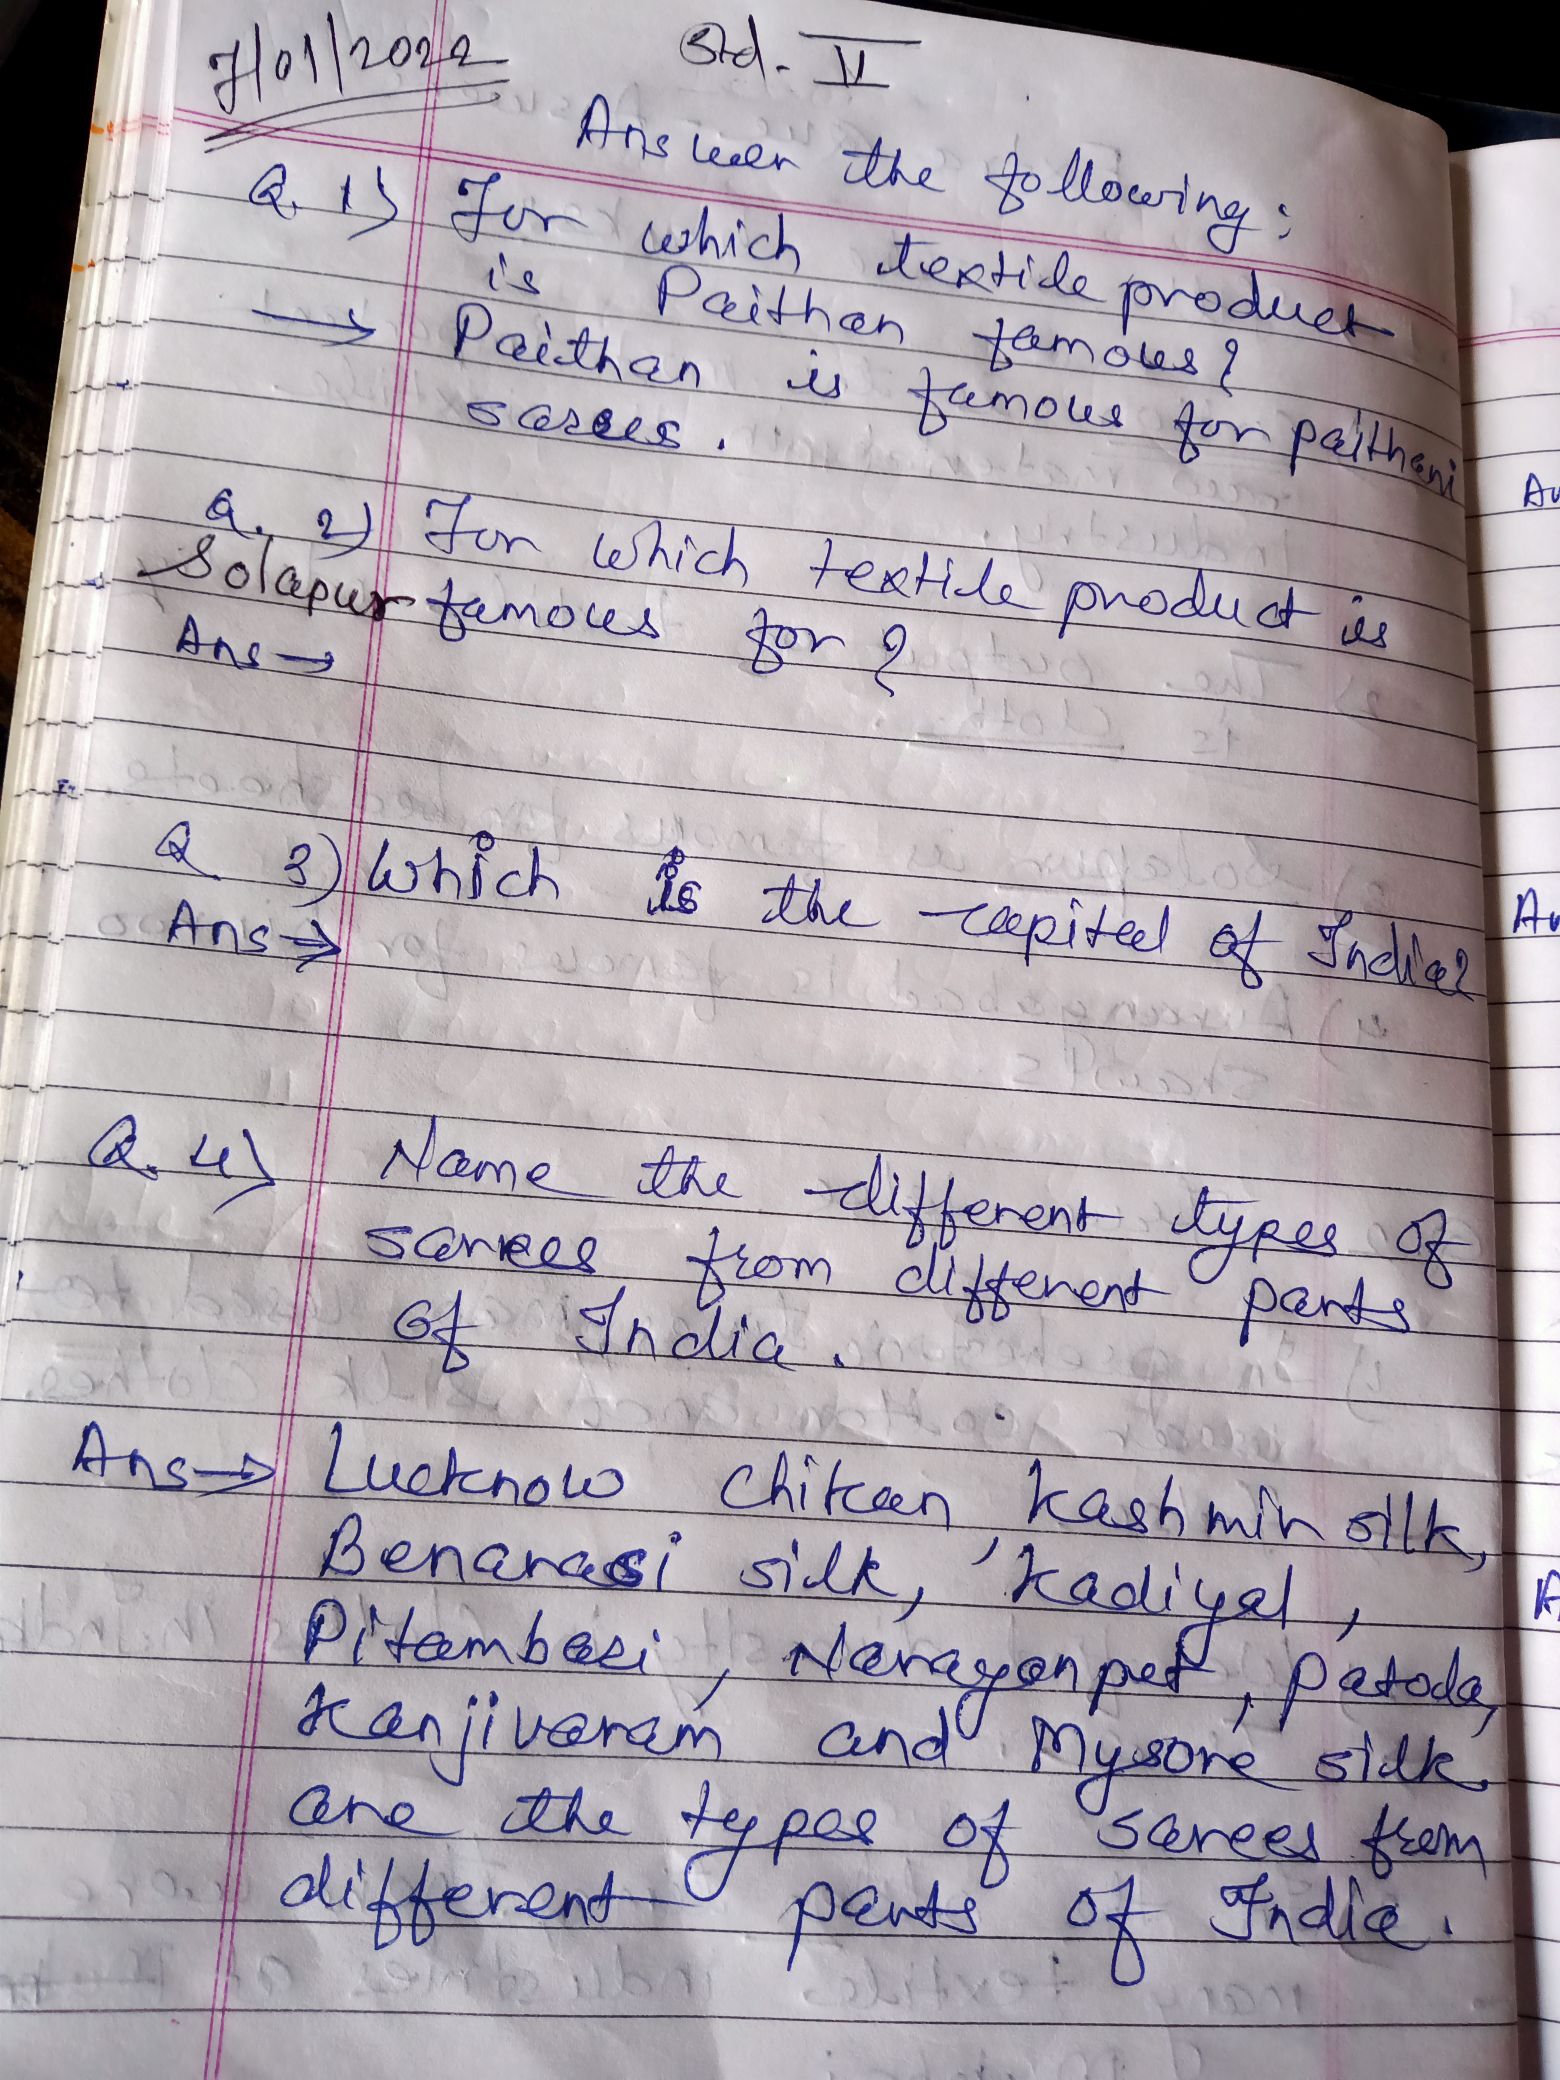 7/01/2022
Std- V
Answer the following:
Q. 1) For which textile product
is Paithan famous?
→ Paithan is famous for paithani
sarees.
Q. 2) For which textile product is
Solapur famous for?
Ans →
Q 3) Which is the capital of India?
Ans →
Q. 4) Name the different types of
sarees from different parts
of India.
Ans → Lucknow Chikan, Kashmir silk,
Benarasi silk, Kadiyal,
Pitambari, Narayanpet, Patoda,
Kanjivaram and Mysore silk
are the types of sarees from
different parts of India.